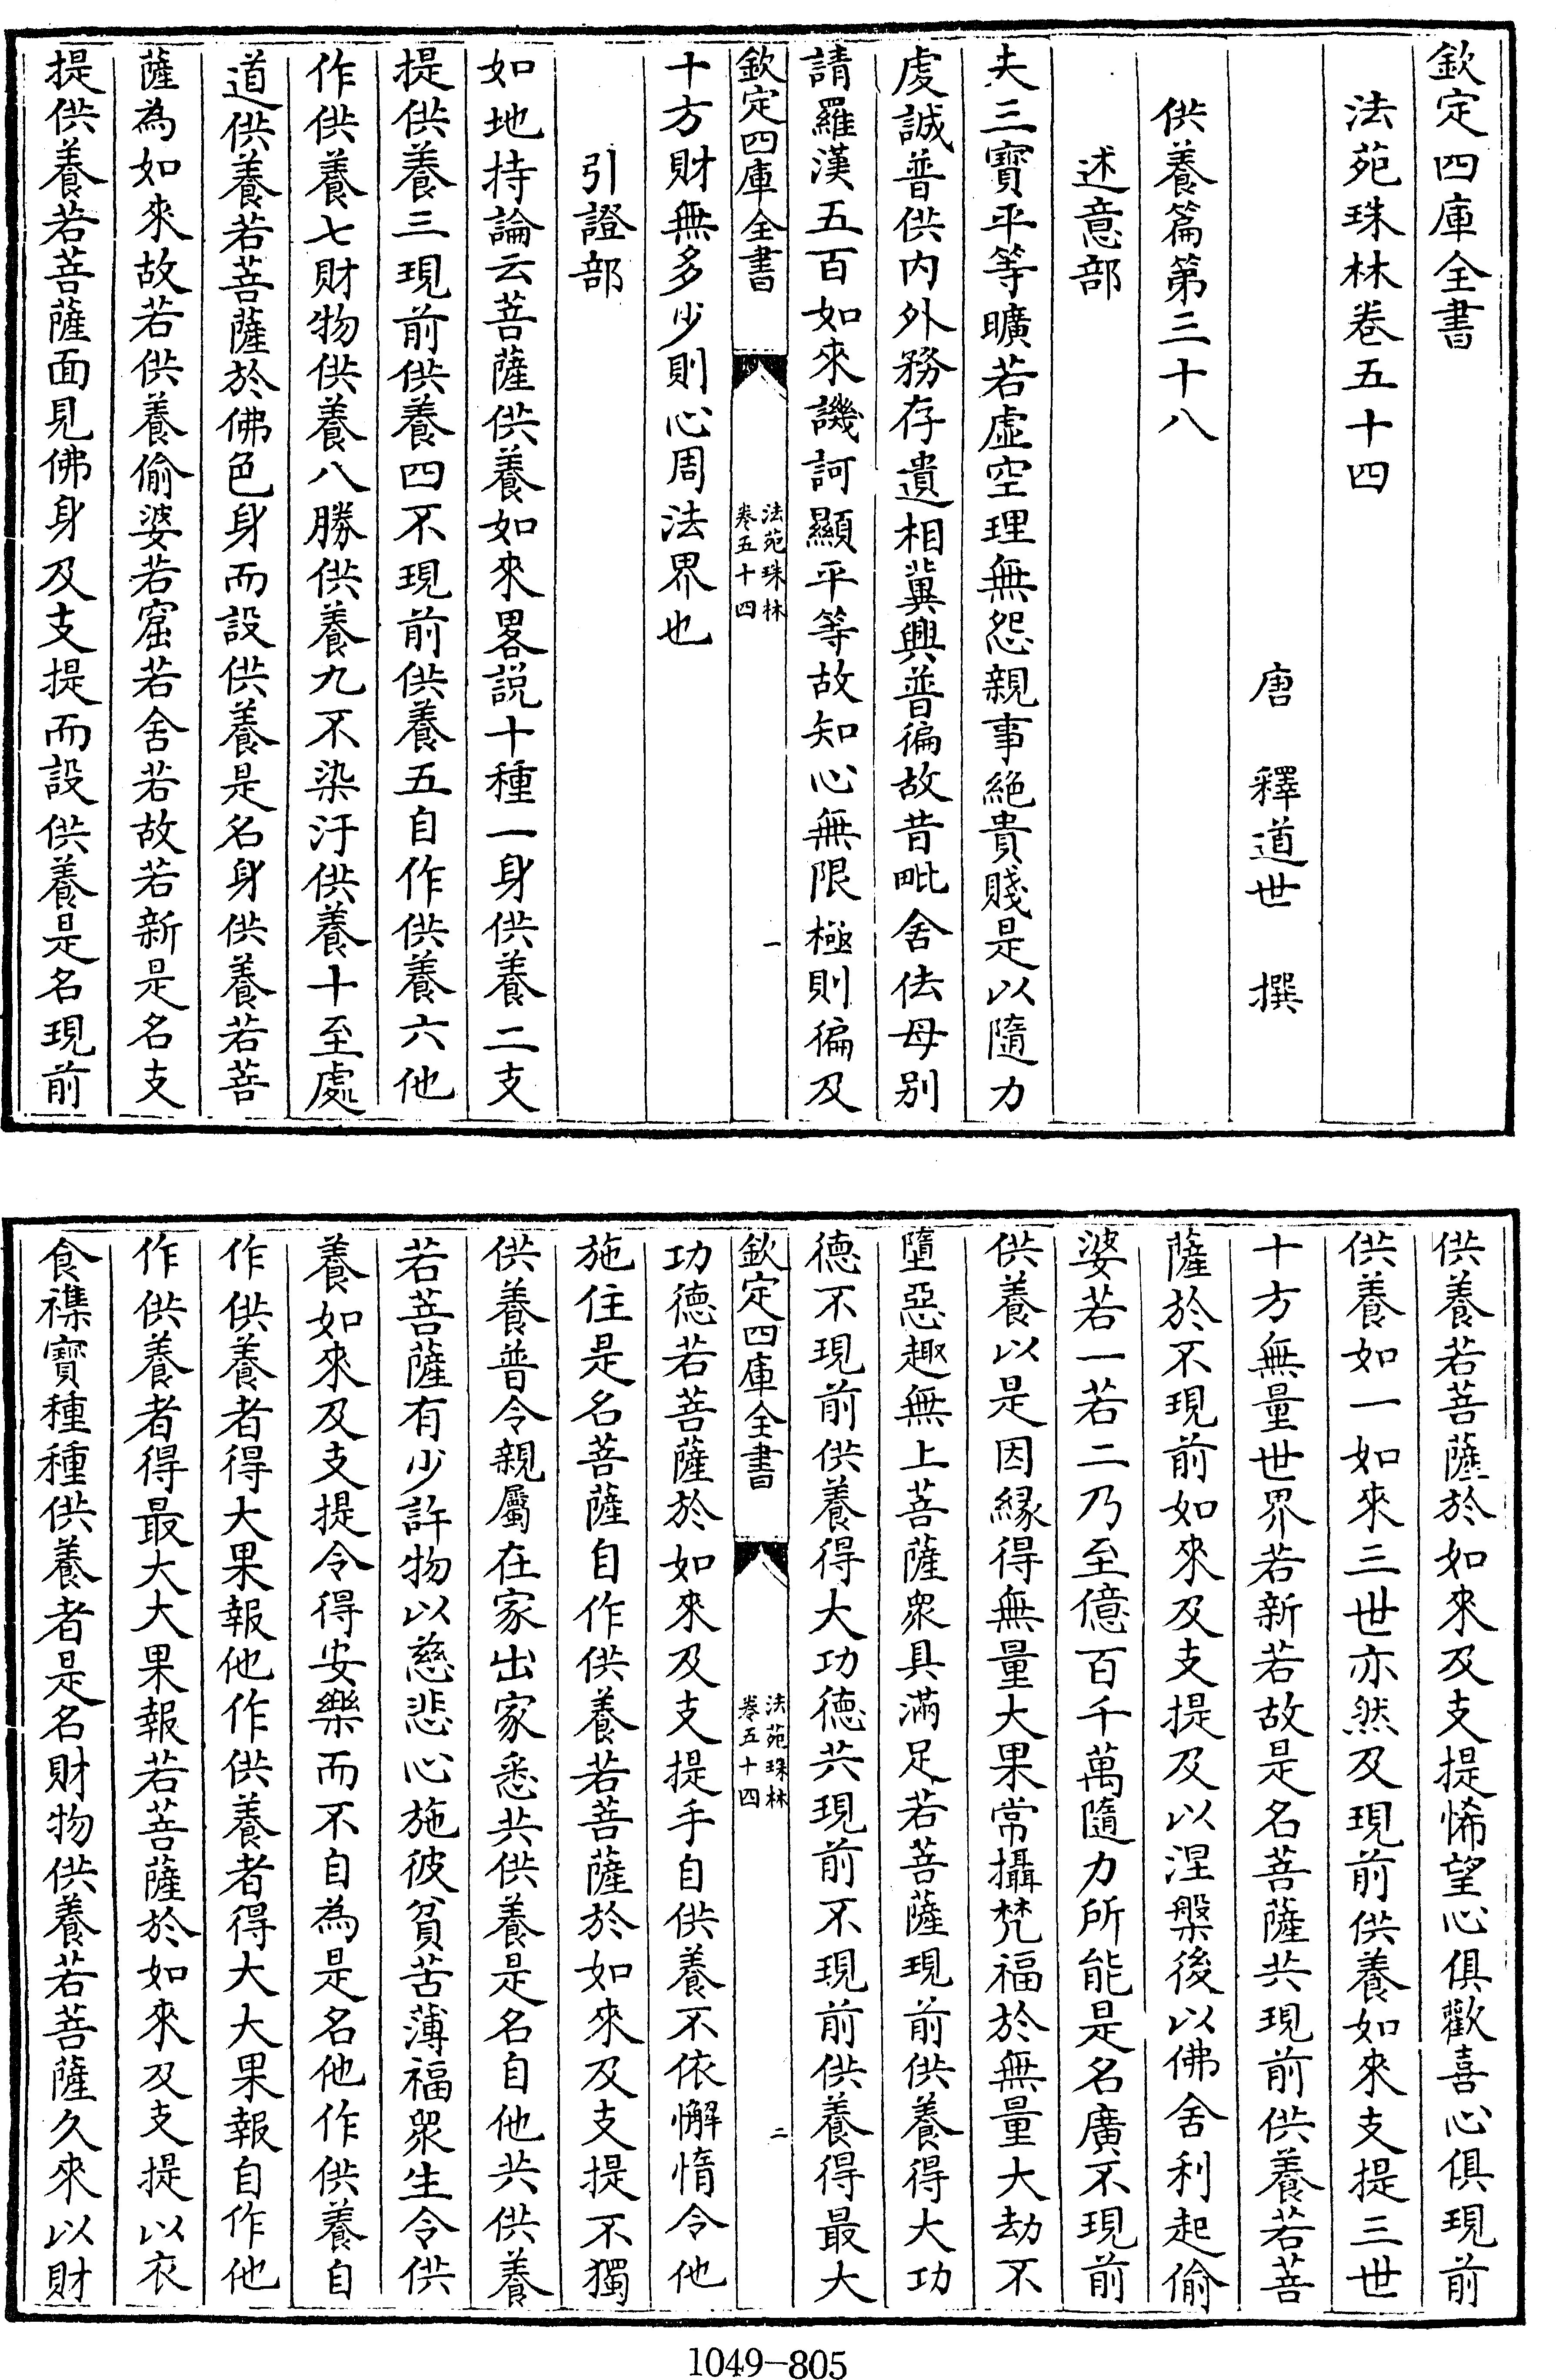 欽定四庫全書
法苑珠林卷五十四
唐　釋道世　撰
供養篇第三十八
述意部
夫三寶平等曠若虛空理無怨親事絶貴賤是以隨力
虔誠普供内外務存遺相冀興普徧故昔毗舍佉母别
請羅漢五百如來譏訶顯平等故知心無限極則徧及
欽定四庫全書
法苑珠林
卷五十四
一
十方財無多少則心周法界也
引證部
如地持論云菩薩供養如來畧説十種一身供養二支
提供養三現前供養四不現前供養五自作供養六他
作供養七財物供養八勝供養九不染汙供養十至處
道供養若菩薩於佛色身而設供養是名身供養若菩
薩為如來故若供養偷婆若窟若舍若故若新是名支
提供養若菩薩面見佛身及支提而設供養是名現前
供養若菩薩於如來及支提悕望心俱歡喜心俱現前
供養如一如來三世亦然及現前供養如來支提三世
十方無量世界若新若故是名菩薩共現前供養若菩
薩於不現前如來及支提及以涅槃後以佛舍利起偷
婆若一若二乃至億百千萬隨力所能是名廣不現前
供養以是因緣得無量大果常攝梵福於無量大劫不
墮惡趣無上菩薩衆具滿足若菩薩現前供養得大功
德不現前供養得大功德共現前不現前供養得最大
欽定四庫全書
法苑珠林
卷五十四
二
功德若菩薩於如來及支提手自供養不依懈惰令他
施住是名菩薩自作供養若菩薩於如來及支提不獨
供養普令親屬在家出家悉共供養是名自他共供養
若菩薩有少許物以慈悲心施彼貧苦薄福衆生令供
養如來及支提令得安樂而不自為是名他作供養自
作供養者得大果報他作供養者得大大果報自作他
作供養者得最大大果報若菩薩於如來及支提以衣
食襍寶種種供養者是名財物供養若菩薩久來以財
1049-805